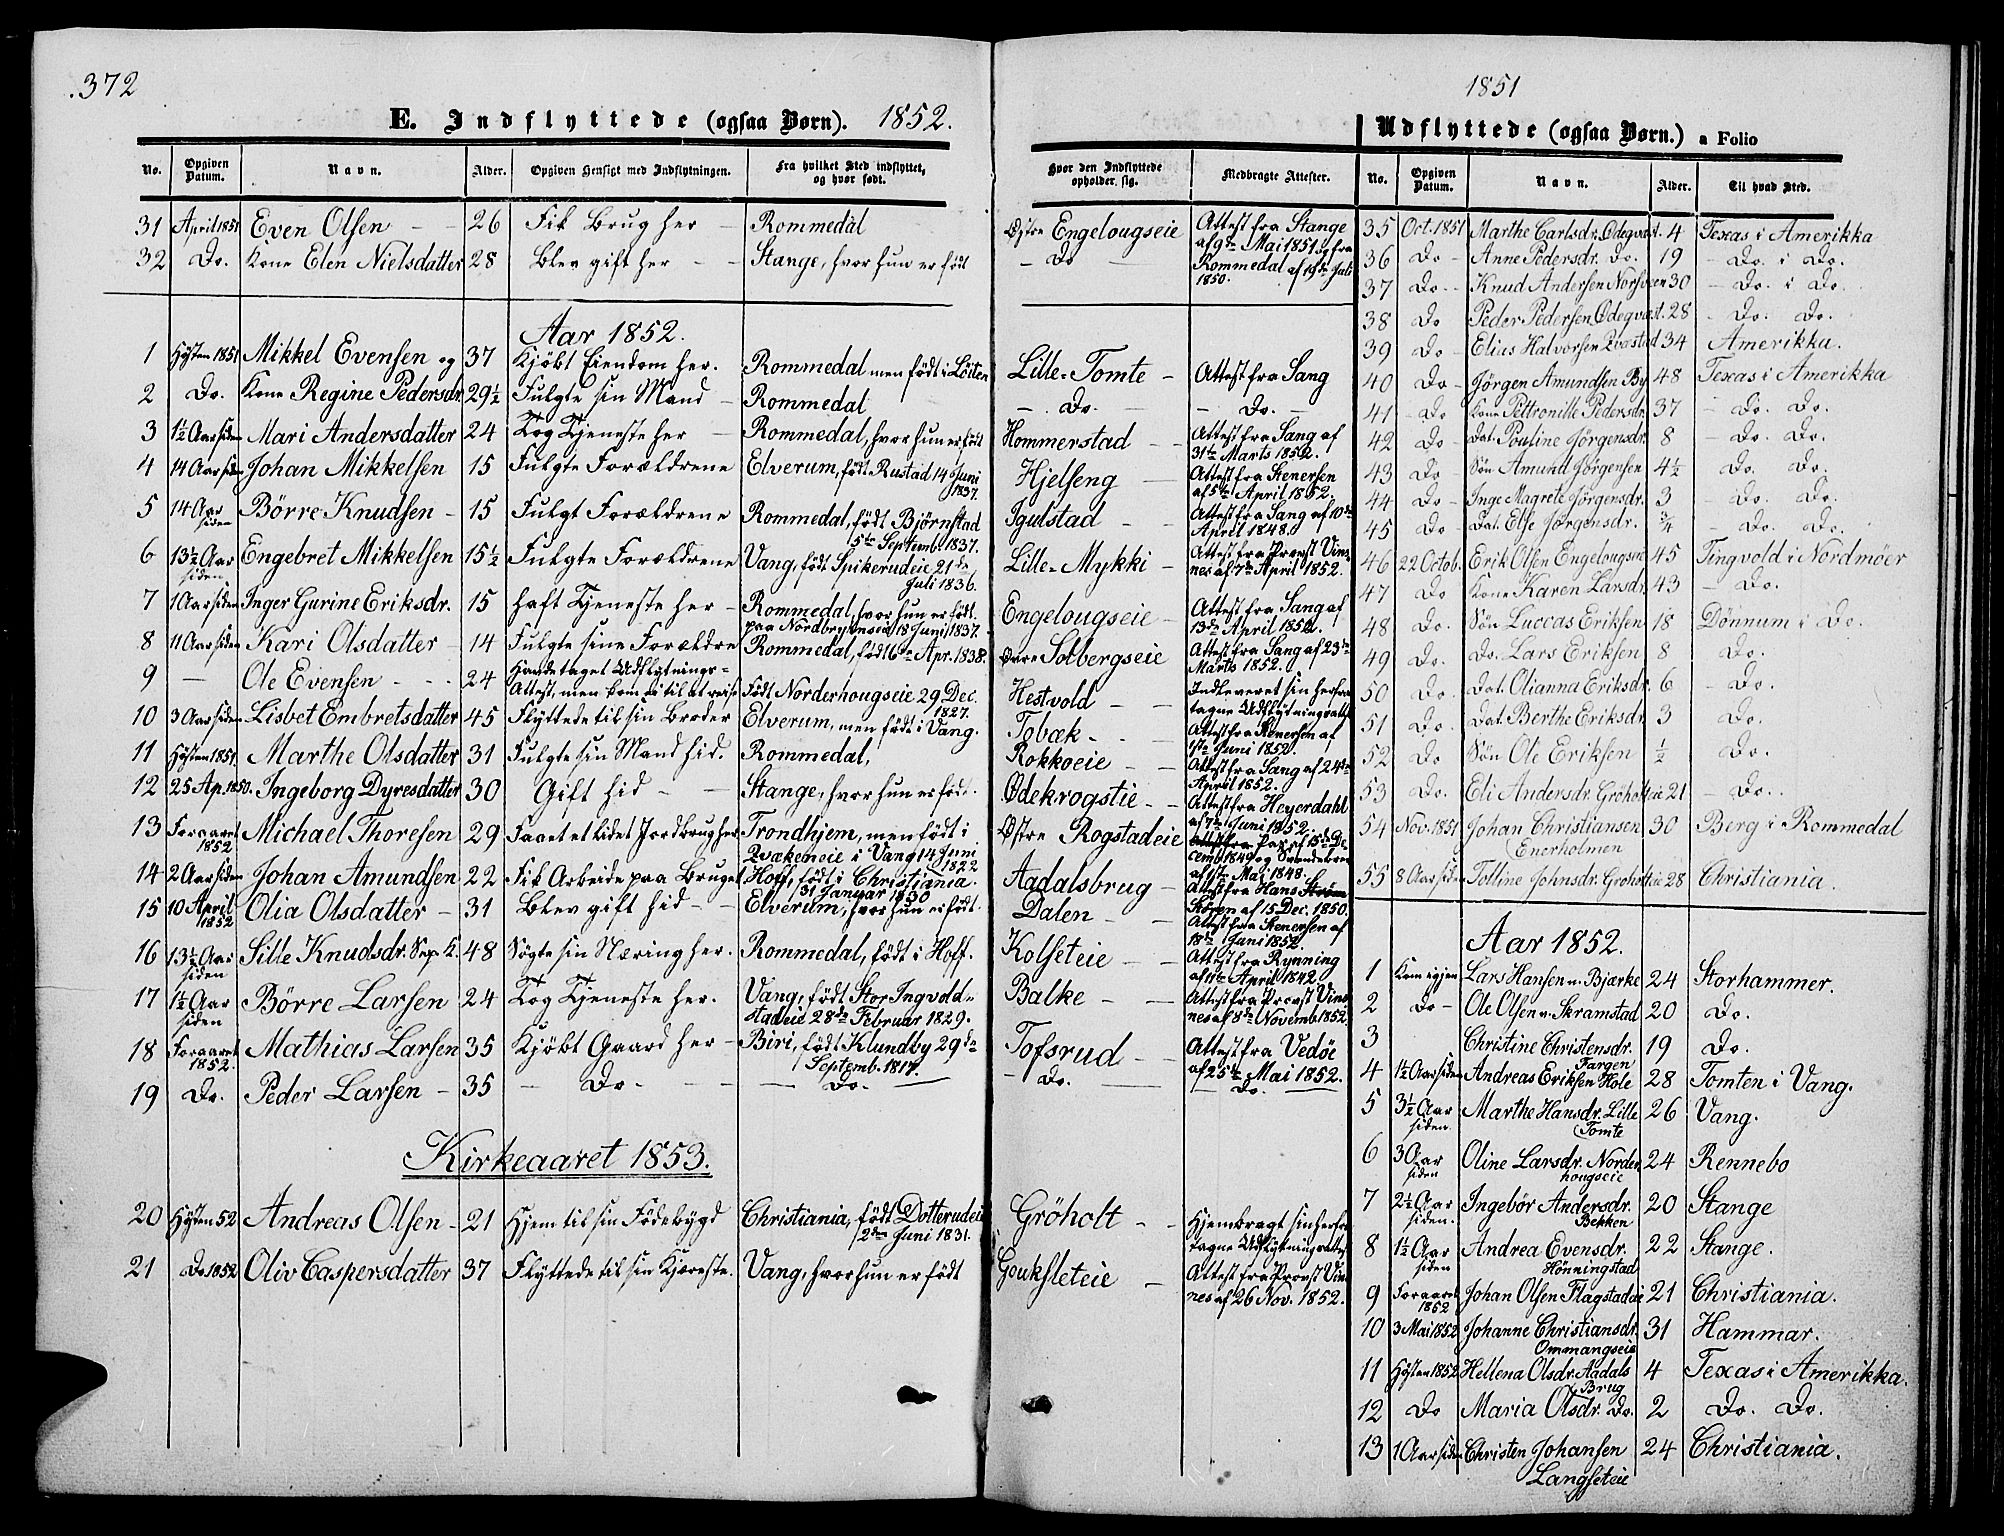 .372
E. Indflyttede (ogsaa Børn). 1852.
No. | Opgiven Datum. | Navn. | Alder. | Opgiven Hensigt med Indflytningen. | Fra hvilket Sted indflyttet, og hvor født.
31 April 1851 Even Olsen - - 26 Fik Brug her - Rommedal
32 Do. Kone Elen Nielsdatter 28 Blev gift her - - Stange, hvor hun er født
Aar 1852.
1 Høsten 1851 Mikkel Evensen og 37 Kjøbt Eiendom her. Rommedal men født i Löiten
2 Do. Kone Regine Pedersdr. 29½ Fulgte sin Mand - Rommedal
3 1½ Aar siden Mari Andersdatter 24 Tog Tjeneste her - Rommedal, hvor hun er født
4 14 Aar siden Johan Mikkelsen 15 Fulgte Forældrene Elverum, født Rustad 14 Juni 1837.
5 14 Aar siden Börre Knudsen - 15 Fulgt Forældrene Rommedal, født Bjørnstad 5te Septemb. 1837.
6 13½ Aar siden Engebret Mikkelsen 15½ Fulgte Forældrene Vang, født Spikerudeie 21de Juli 1836.
7 1 Aar siden Inger Gurine Eriksdr. 15 haft Tjeneste her - Rommedal, hvor hun er født paa Nordbryhnseie 18 Juni 1837.
8 11 Aar siden Kari Olsdatter - 14 Fulgte sine Forældre Rommedal, født 6te Apr. 1838.
9 - Ole Evensen - - - 24 Havde taget Udflytnings-Attest, men kom ei til at reise Født Norderhougseie 29 Dec. 1827.
10 3 Aar siden Lisbet Embretsdatter 45 Flyttede til sin Broder Elverum, men født i Vang.
11 Høsten 1851. Marthe Olsdatter 31 Fulgte sin Mand hid. Rommedal,
12 25 Ap. 1850. Ingeborg Dyresdatter 30 Gift hid - - Stange, hvor hun er født.
13 Foraaret 1852 Michael Thoresen 29 Faaet et lidet Jordbrug her Trondhjem, men født i Qvækeneie i Vang 14 Juni 1822
14 2 Aar siden Johan Amundsen 22 Fik Arbeide paa Bruget Hoff, født i Christiania. 31 Januar 1830
15 10 April 1852 Olia Olsdatter - 31 Blev gift hid - - Elverum, hvor hun er født.
16 13½ Aar siden Sille Knudsdr. Sep. K. 48 Søgte sin Næring her. Rommedal, født i Hoff.
17 1½ Aar siden Börre Larsen 24 Tog Tjeneste her. Vang, født Stor Ingvoldstadeie 28de Februar 1829.
18 Foraaret 1852. Mathias Larsen 35 Kjøbt Gaard her - Biri, født Klundby 29de Septemb. 1817.
19 Do. Peder Larsen - 35 - Do - - Do. -
Kirkeaaret 1853.
20 Høsten 52 Andreas Olsen - 21 Hjem til sin Födebygd Christiania, født Dotterudeie 2den Juni 1831.
21 Do 1852 Oliv Caspersdatter 37 Flyttede til sin Kjæreste. Vang, hvor hun er født
1851
Hvor den Indflyttede opholder sig. | Medbragte Attester.
Østre Engelougseie Attest fra Stange af 9de Mai 1851 og fra
- Do - Rommedal af 19de Juli 1850.
Lille-Tomte - Attest fra Sang
- Do. - - Do. -
Hommerstad - - Attest fra Sang af 31te Marts 1852.
Hjelseng - Attest fra Stenersen af 5te April 1852.
Igulstad - - Attest fra Sang af 10de April 1848.
Lille-Mykki - Attest fra Provst Vinsnes af 7de April 1852.
Engelougseie - Attest fra Sang af 13de April 1852.
Øvre Solbergseie Attest fra Sang af 23de Marts 1852.
Hestvold - - Indleveret sin herfra tagne Udflytningsattest
Tobæk - - Attest fra Stenersen af 1ste Juni 1852.
Rokkoeie - - Attest fra Sang af 24de April 1852.
Ødekrogstie - - Attest fra Heyerdahl af 7de Juni 1852.
Østre Rogstadeie Attest fra Pax af 15de Decemb 1849 og Svendekren af 1ste Mai 1848.
Aadalsbrug - Attest fra Hans Ström Stören af 15 Dec. 1850.
Dalen - - Attest fra Stenersen af 18de Juni 1852.
Kolseteie - - Attest fra Rynning af 11te April 1842.
Balke - - Attest fra Provst Vinsnes af 8de Novemb 1852.
Tofsrud - - Attest fra Vedöe af 25de Mai 1852.
- Do. - - Do. -
Gröholt - - Hjembragt sin herfra tagne Udflytningsattest
Gouksleteie - Attest fra Provst Vinsnes af 26 Nov. 1852.
Udflyttede (ogsaa Børn.) a Folio
No. | Opgiven Datum. | Navn. | Alder. | Til hvad Sted.
35 Oct. 1851 Marthe Carlsdr. Ödegvast. 4 Texas i Amerikka
36 Do - Anne Pedersdr. Do. 19 - Do. i Do.
37 Do - Knud Andersen Norsveen 30 - Do. i Do.
38 Do Peder Pedersen Ödegvast. 28 - Do. Do.
39 Do - Elias Halvorsen Qvastad 34 Amerikka.
40 Do - Jörgen Amundsen By 48 Texas i Amerikka
41 - Do Kone Pettronille Pedersdr. 37 - Do. Do.
42 Do - Dat. Pouline Jörgensdr. 8 - Do. Do.
43 Do Sön Amund Jörgensen 4½ Do. Do.
44 Do - Inge Magrete Jörgensdr. 3 - Do. Do.
45 Do Dat. Else Jörgensdr. ¾ - Do. Do.
46 22 Octob. Erik Olsen Engelougseie 45 Tingvold i Nordmöer
47 Do Kone Karen Larsdr. 43 - Do.
48 Do. Sön Luccas Eriksen 18 Dönnum i Do.
49 Do. Do. Lars Eriksen 8 Do.
50 Do. Dat. Olianna Eriksdr. 6 - Do.
51 Do. Dat. Berthe Eriksdr. 3 Do.
52 Do Sön Ole Eriksen ½ Do.
53 Do. Eli Andersdr. Gröholteie 21 - Do.
54 Nov. 1851 Johan Christiansen Enerholmen 30 Berg i Rommedal
55 8 Aar siden Tolline Johnsdr. Groholteie 28 Christiania.
Aar 1852.
1 Kom igjen Lars Hansen v. Bjærke 24 Storhammer.
2 Do - Ole Olsen v. Skramstad 20 Do.
3 Christine Christensdr. Fargen 19 Do.
4 1½ Aar siden Andreas Eriksen Hole 28 Tomten i Vang.
5 3½ Aar siden. Marthe Hansdr. Lille Tomte 26 Vang.
6 3 Aar siden Oline Larsdr. Norderhougseie 24 Rennebo
7 2½ Aar siden. Ingebör Andersdr. Bekken 20 Stange
8 1½ Aar siden Andrea Evensdr. Hönningstad 22 Stange.
9 Foraaret 1852 Johan Olsen Flagstadeie 21 Christiania.
10 3 Mai 1852 Johanne Christiansdr. Ommangseie 31 Hammar.
11 Høsten 1852 Hellena Olsdr. Aadals Brug 4 Texas i Amerikka.
12 Do Maria Olsdr. Do. 2 Do. Do.
13 1 Aar siden Christen Johansen Langseteie 24 Christiania.